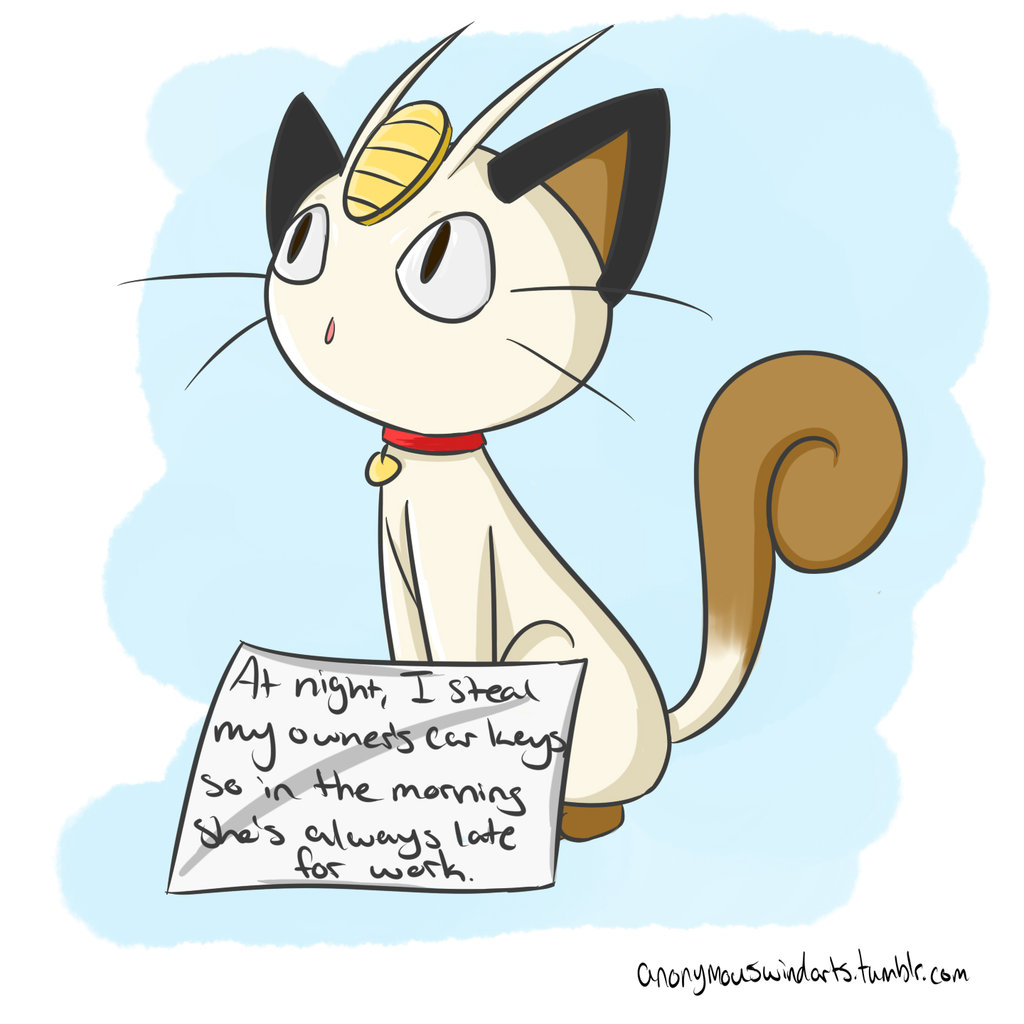 At night, I steal
my owner's car keys,
so in the morning
she's always late
for work.
anonymouswindarts.tumblr.com